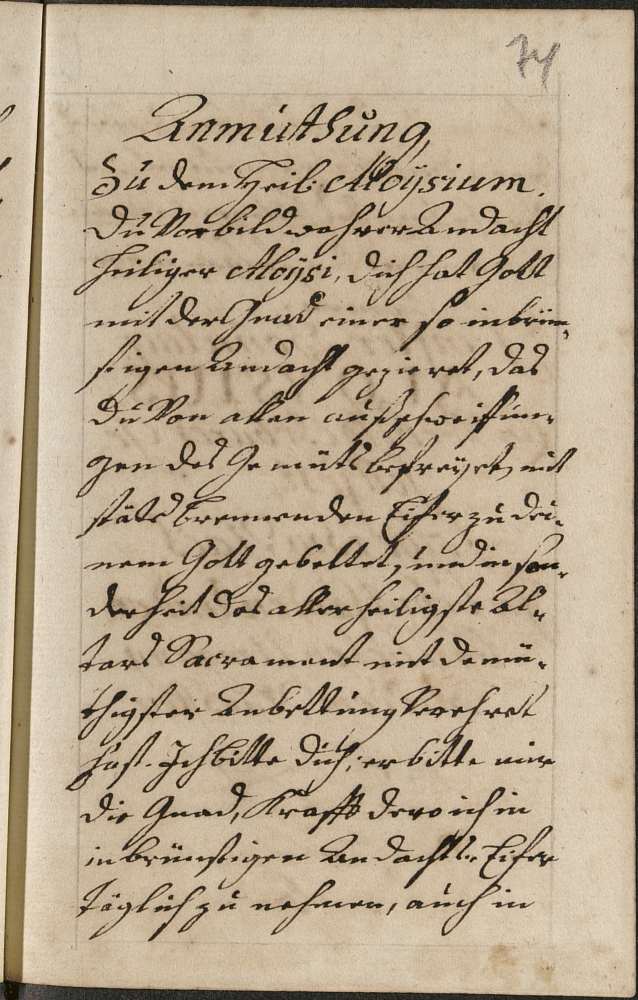 74
Anmüthung,
Zu dem Heil: Aloÿsium.
Du Vorbild wahrer Andacht
Heiliger Aloÿsi, dich hat Gott
mit der Gnad einer so inbrün-
stigen Andacht gezieret, das
du Von allen außschweiffun-
gen des Gemüts befreÿet, mit
stäts brennenden Eifer zu dei-
nem Gott gebettet, und in son-
derheit das allerheiligste Al-
tars Sacrament mit demü-
thigster Anbettung Verehret
hast. Ich bitte dich, erbitte mir
die Gnad, Krafft dero ich in
inbrünstigen Andachts-Eifer
täglich zu nehmen, auch in